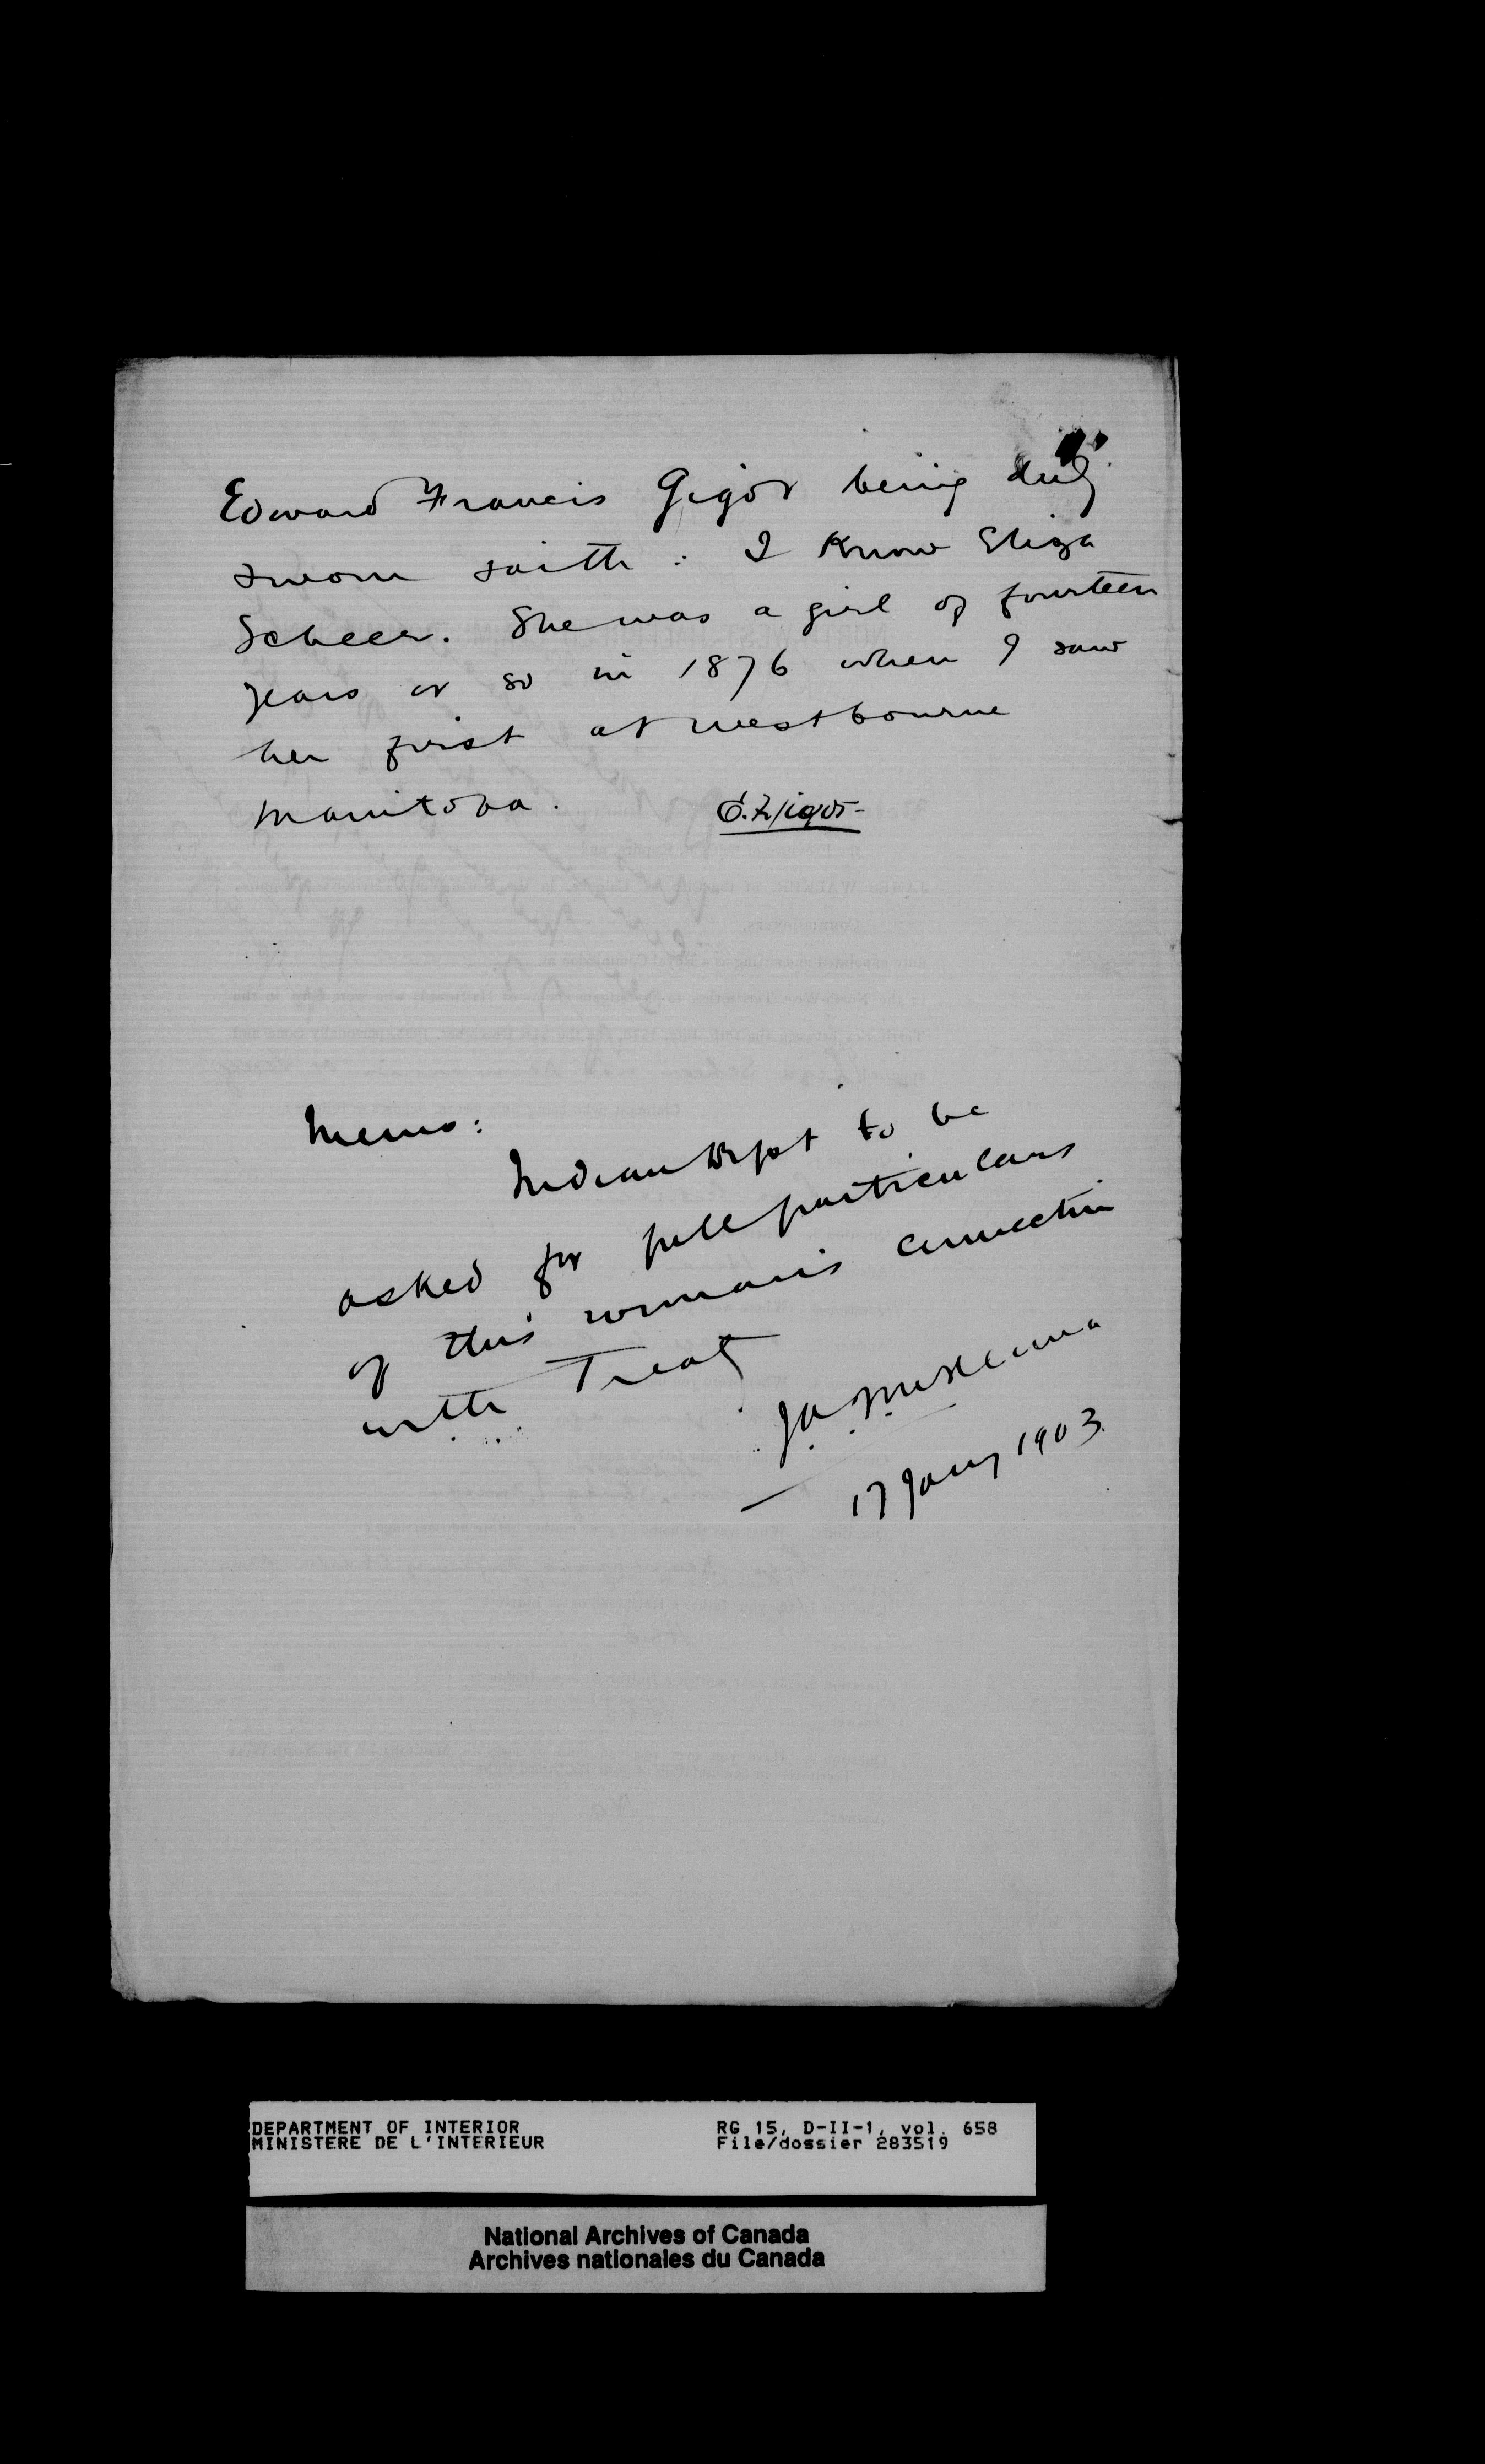 Edward Francis Gigot being duly
sworn saith : I Know Eliza
Scheer. She was a girl of fourteen
years or so in 1876 when I saw
her first at Westbourne
Manitoba.
E. F. Gigot
Memo:
Indian Dept to be
asked for full particulars
of this woman's connection
with Treaty
J A McKenna
17 Jany 1903
DEPARTMENT OF INTERIOR
MINISTERE DE L'INTERIEUR
RG 15, D-II-1, vol. 658
File/dossier 283519
National Archives of Canada
Archives nationales du Canada